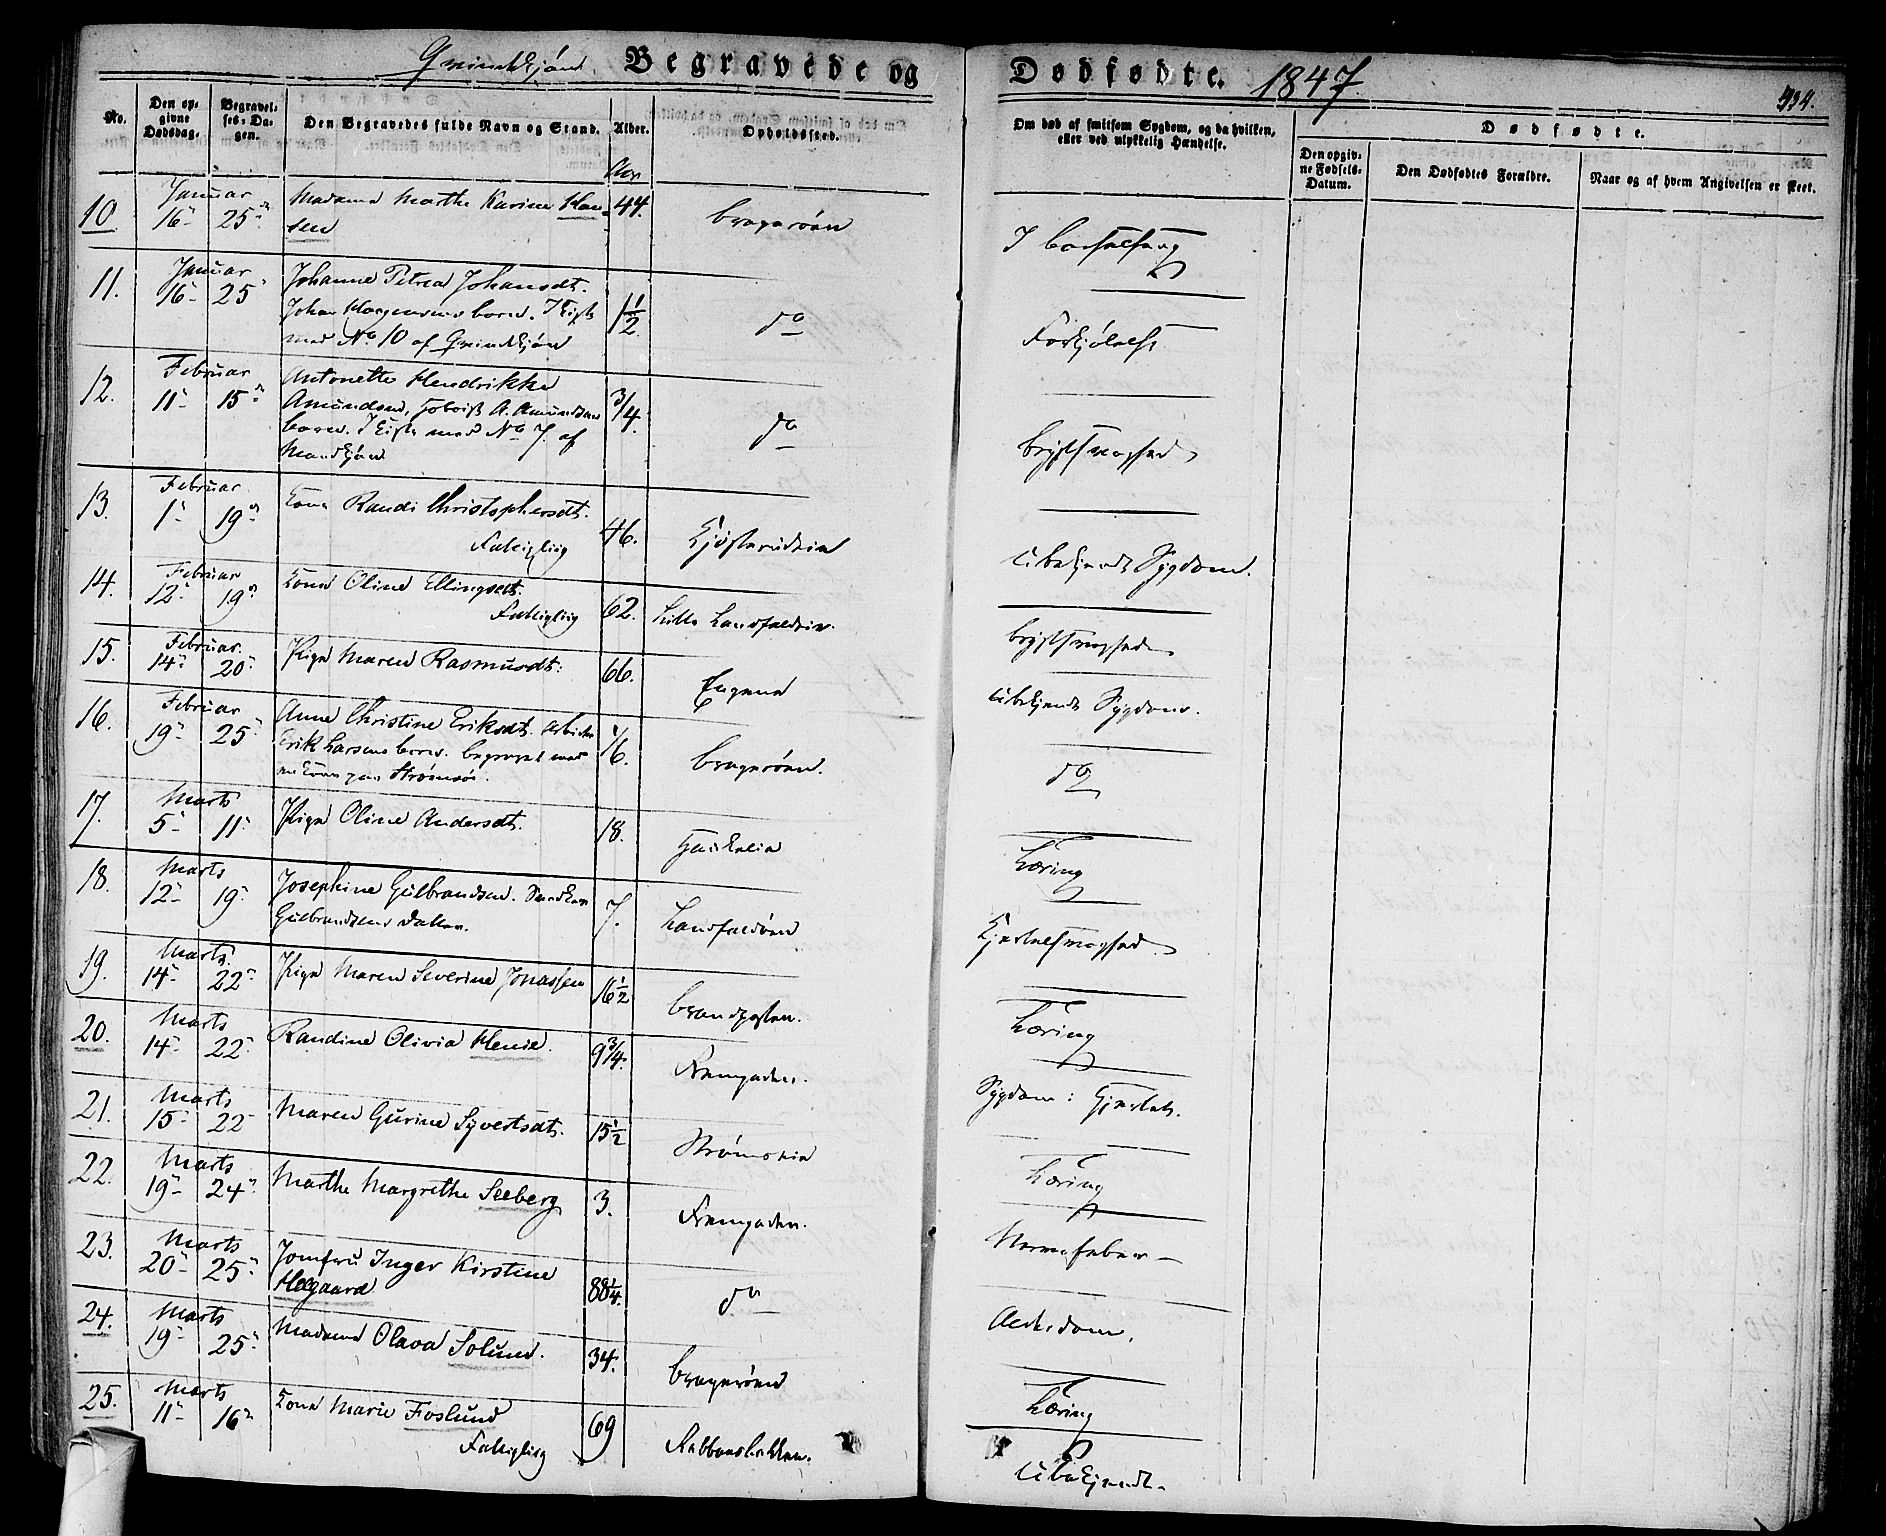 Qvindekjøn. Begravede og Dødfødte. 1847. 434.
No.
Den opgivne Dødsdag.
Begravelses-Dagen.
Den Begravedes fulde Navn og Stand.
Alder.
Opholdssted.
Om død af smitsom Sygdom, og da hvilken, eller ved ulykkelig Hændelse.
Dødfødte.
Den opgivne Fødsels-Datum.
Den Dødfødtes Forældre.
Naar og af hvem Angivelsen er skeet.
Aar
10 Januar 16 25 Madame Marthe Karine Hansen 44. Bragerøen I Barselseng
11. Januar 16 25 Johanne Petrea Johansdt.
Johan Barn. I Kiste
med No 10 af Qvindekjøn 1 1/2 do Forkjølelse
12. Februar 11 15 Antonette Hendrikke
Amundsen, A. Amundsens
Barn. I Kiste med No 7. af
Mandkjøn 3/4. do Brystsvaghed
13. Februar 1 19 Kone Randi Christophersdt.
Fattiglig 46. Ubekjendt Sygdom.
14. Februar 12 19 Kone Oline Ellingsdt.
Fattiglig 62. Lille Brystsvaghed
15. Februar 14 20 Pige Maren Rasmusdt: 66. Engene Ubekjendt Sygdom.
16. Februar 19 25 Anne Christine Eriksdt.
Erik Larsens Barn. begravet med
en Kone paa Strømsø. 1/6. Bragerøen. do
17. Marts 5 11 Pige Oline Andersdt. 18. Tæring
18. Marts 12 19 Josephine Gulbrandsen.
Gulbrandsens Datter. 7. Landfaldøen Kjertelsvaghed
19. Marts 14 22 Pige Maren Severine Jonassen 16 1/2 Brandposten. Tæring
20. Marts 14 22 Randine Olivia Henie. 9 3/4. Sygdom i Kjertel.
21. Marts 15 22 Maren Gurine Syvertsdt. 15 1/2 Strømsøen Tæring
22. Marts 19 24 Marthe Margrethe Seeberg 3. Nervefeber
23. Marts 20 25 Jomfru Inger Kirstine
Helgaard 88 1/4. do Alderdom.
24. Marts 19 25 Madame Olava Solund. 34. Bragerøen Tæring
25. Marts 11 16 Kone Marie Foslund
Fattiglig 69 Ubekjendt.